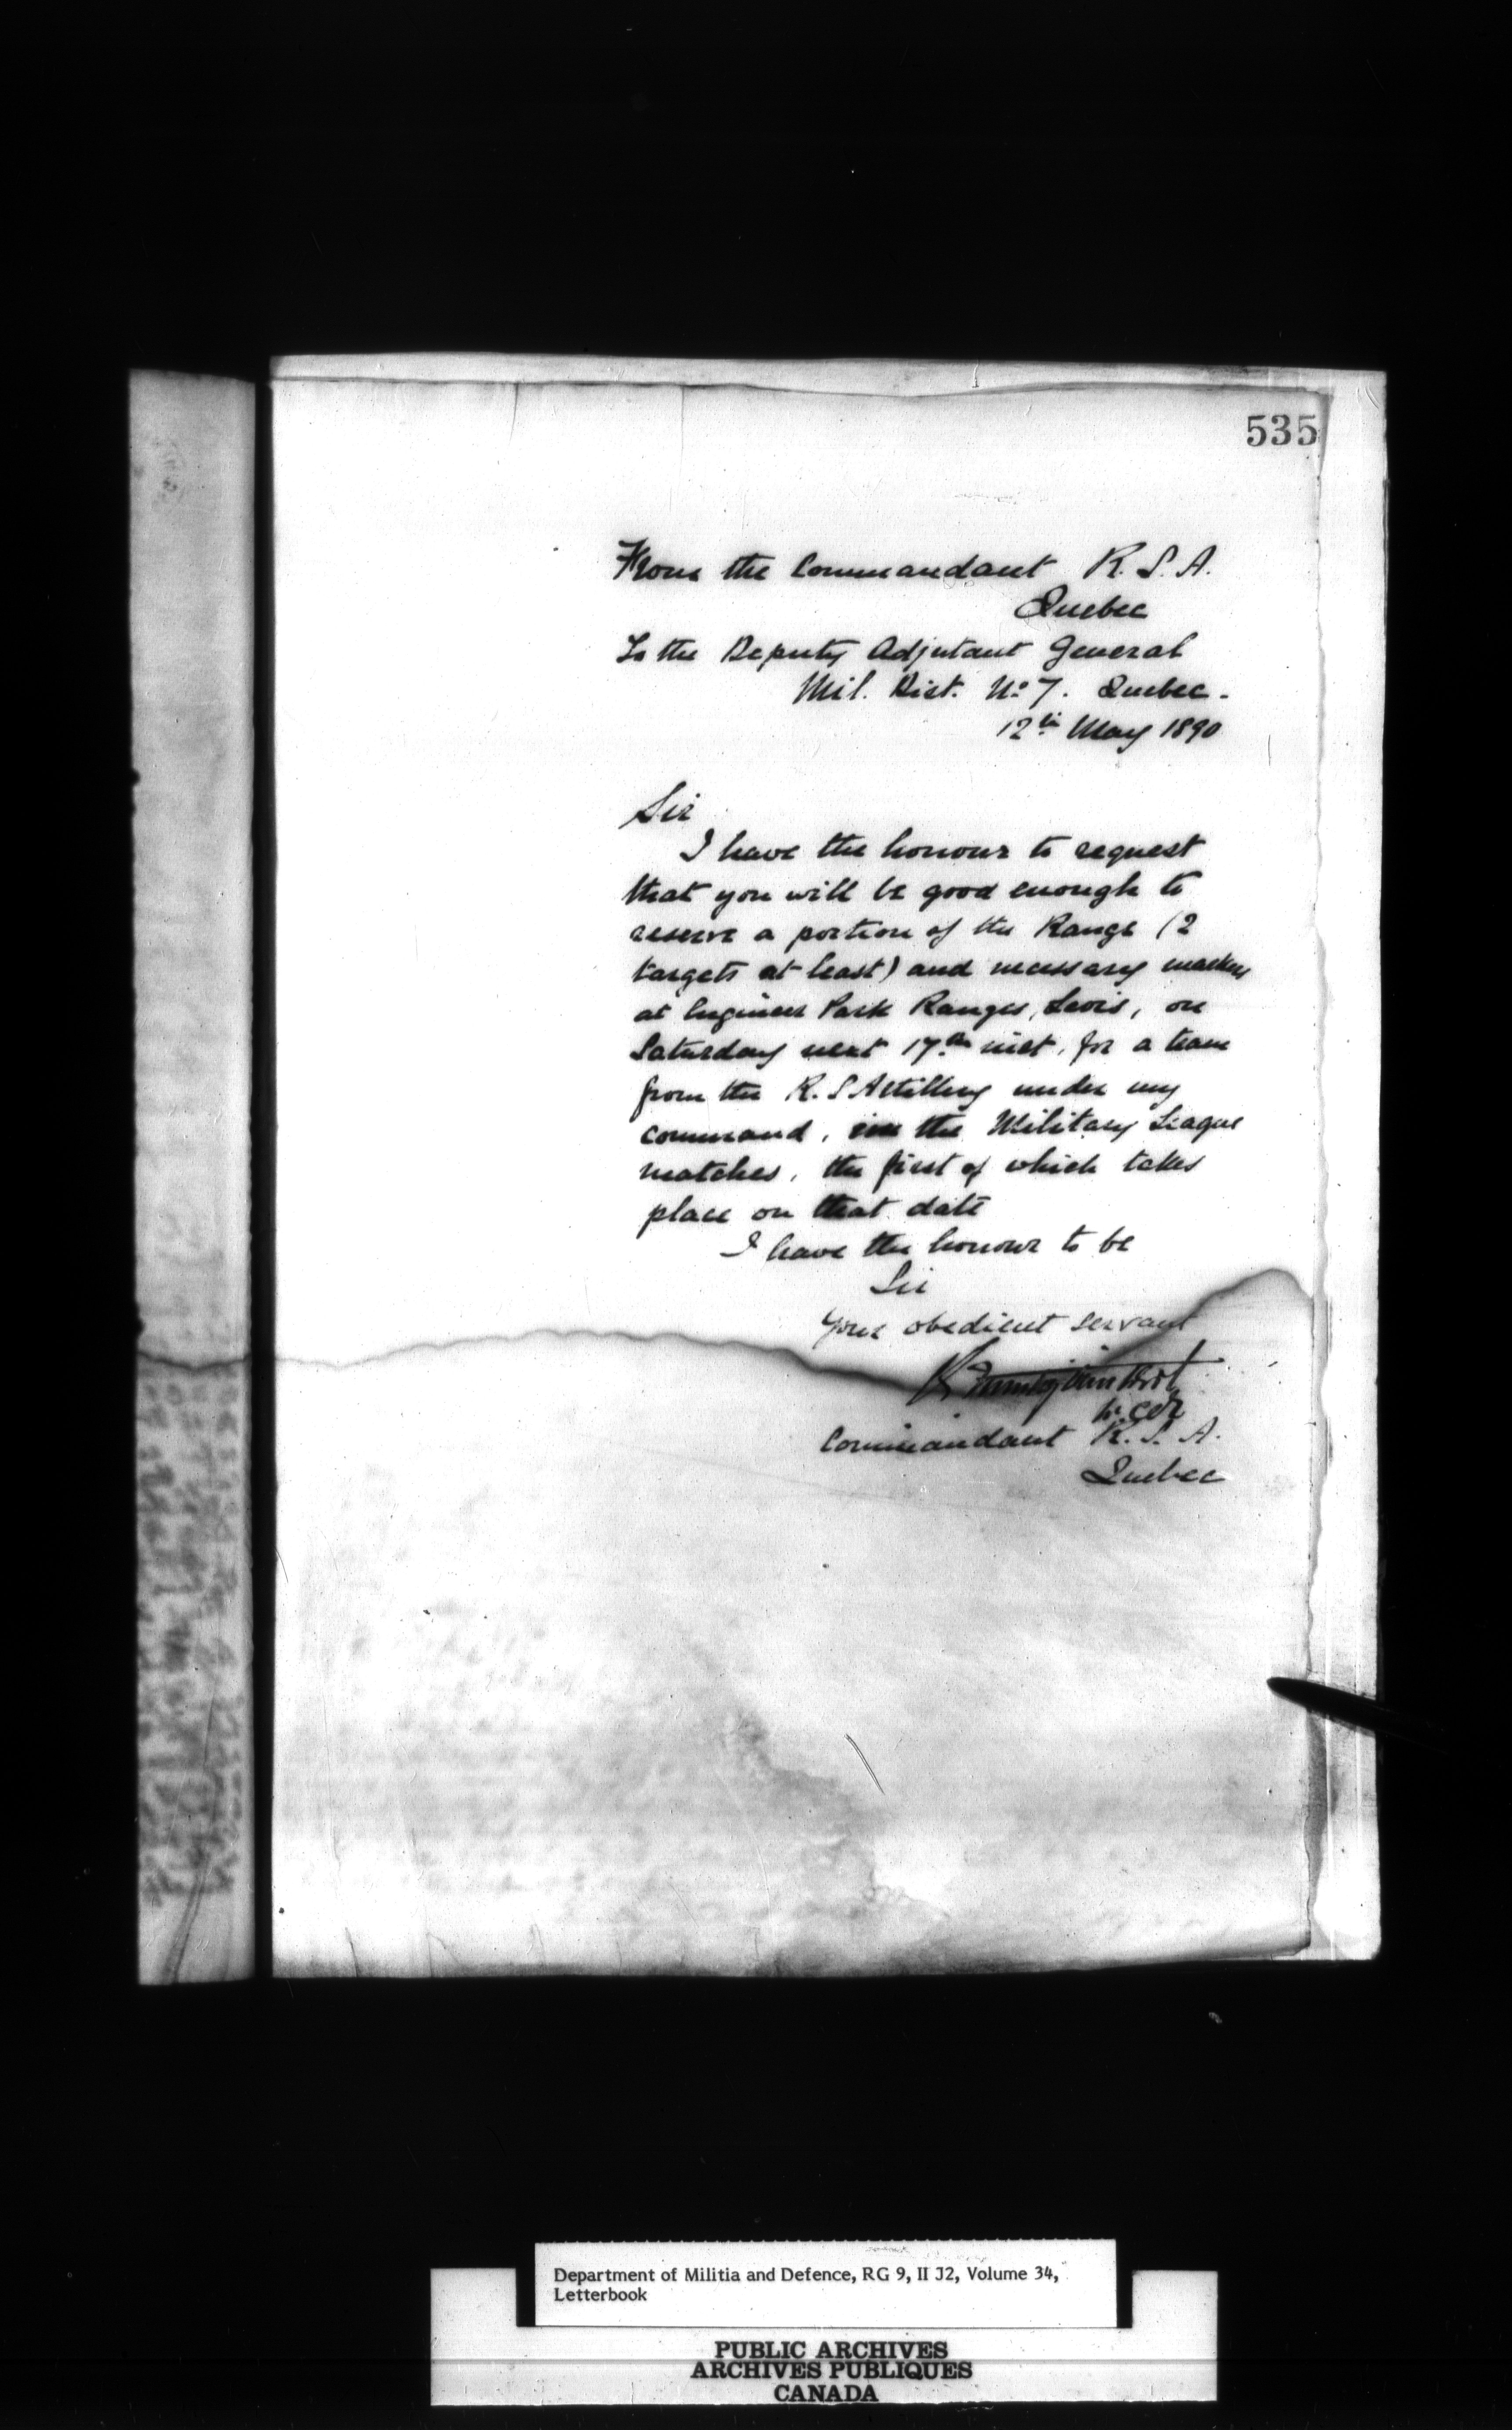 535
From the Commandant R. S. A.
Quebec
To the Deputy Adjutant General
Mil. Dist. No 7. Quebec.
12th May 1890
Sir
I have the honour to request
that you will be good enough to
reserve a portion of the Range (2
targets at least) and necessary markers
at Engineer Park Ranges, Levis, on
Saturday next 17th inst, for a team
from the R. S Artillery under my
command, in the Military League
matches, the first of which takes
place on that date
I have the honour to be
Sir
Your obedient servant
Commandant R. S. A.
Quebec
Department of Militia and Defence, RG 9, II J2, Volume 34,
Letterbook
PUBLIC ARCHIVES
ARCHIVES PUBLIQUES
CANADA